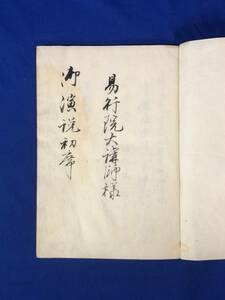 易行院大講師様
御演説初席